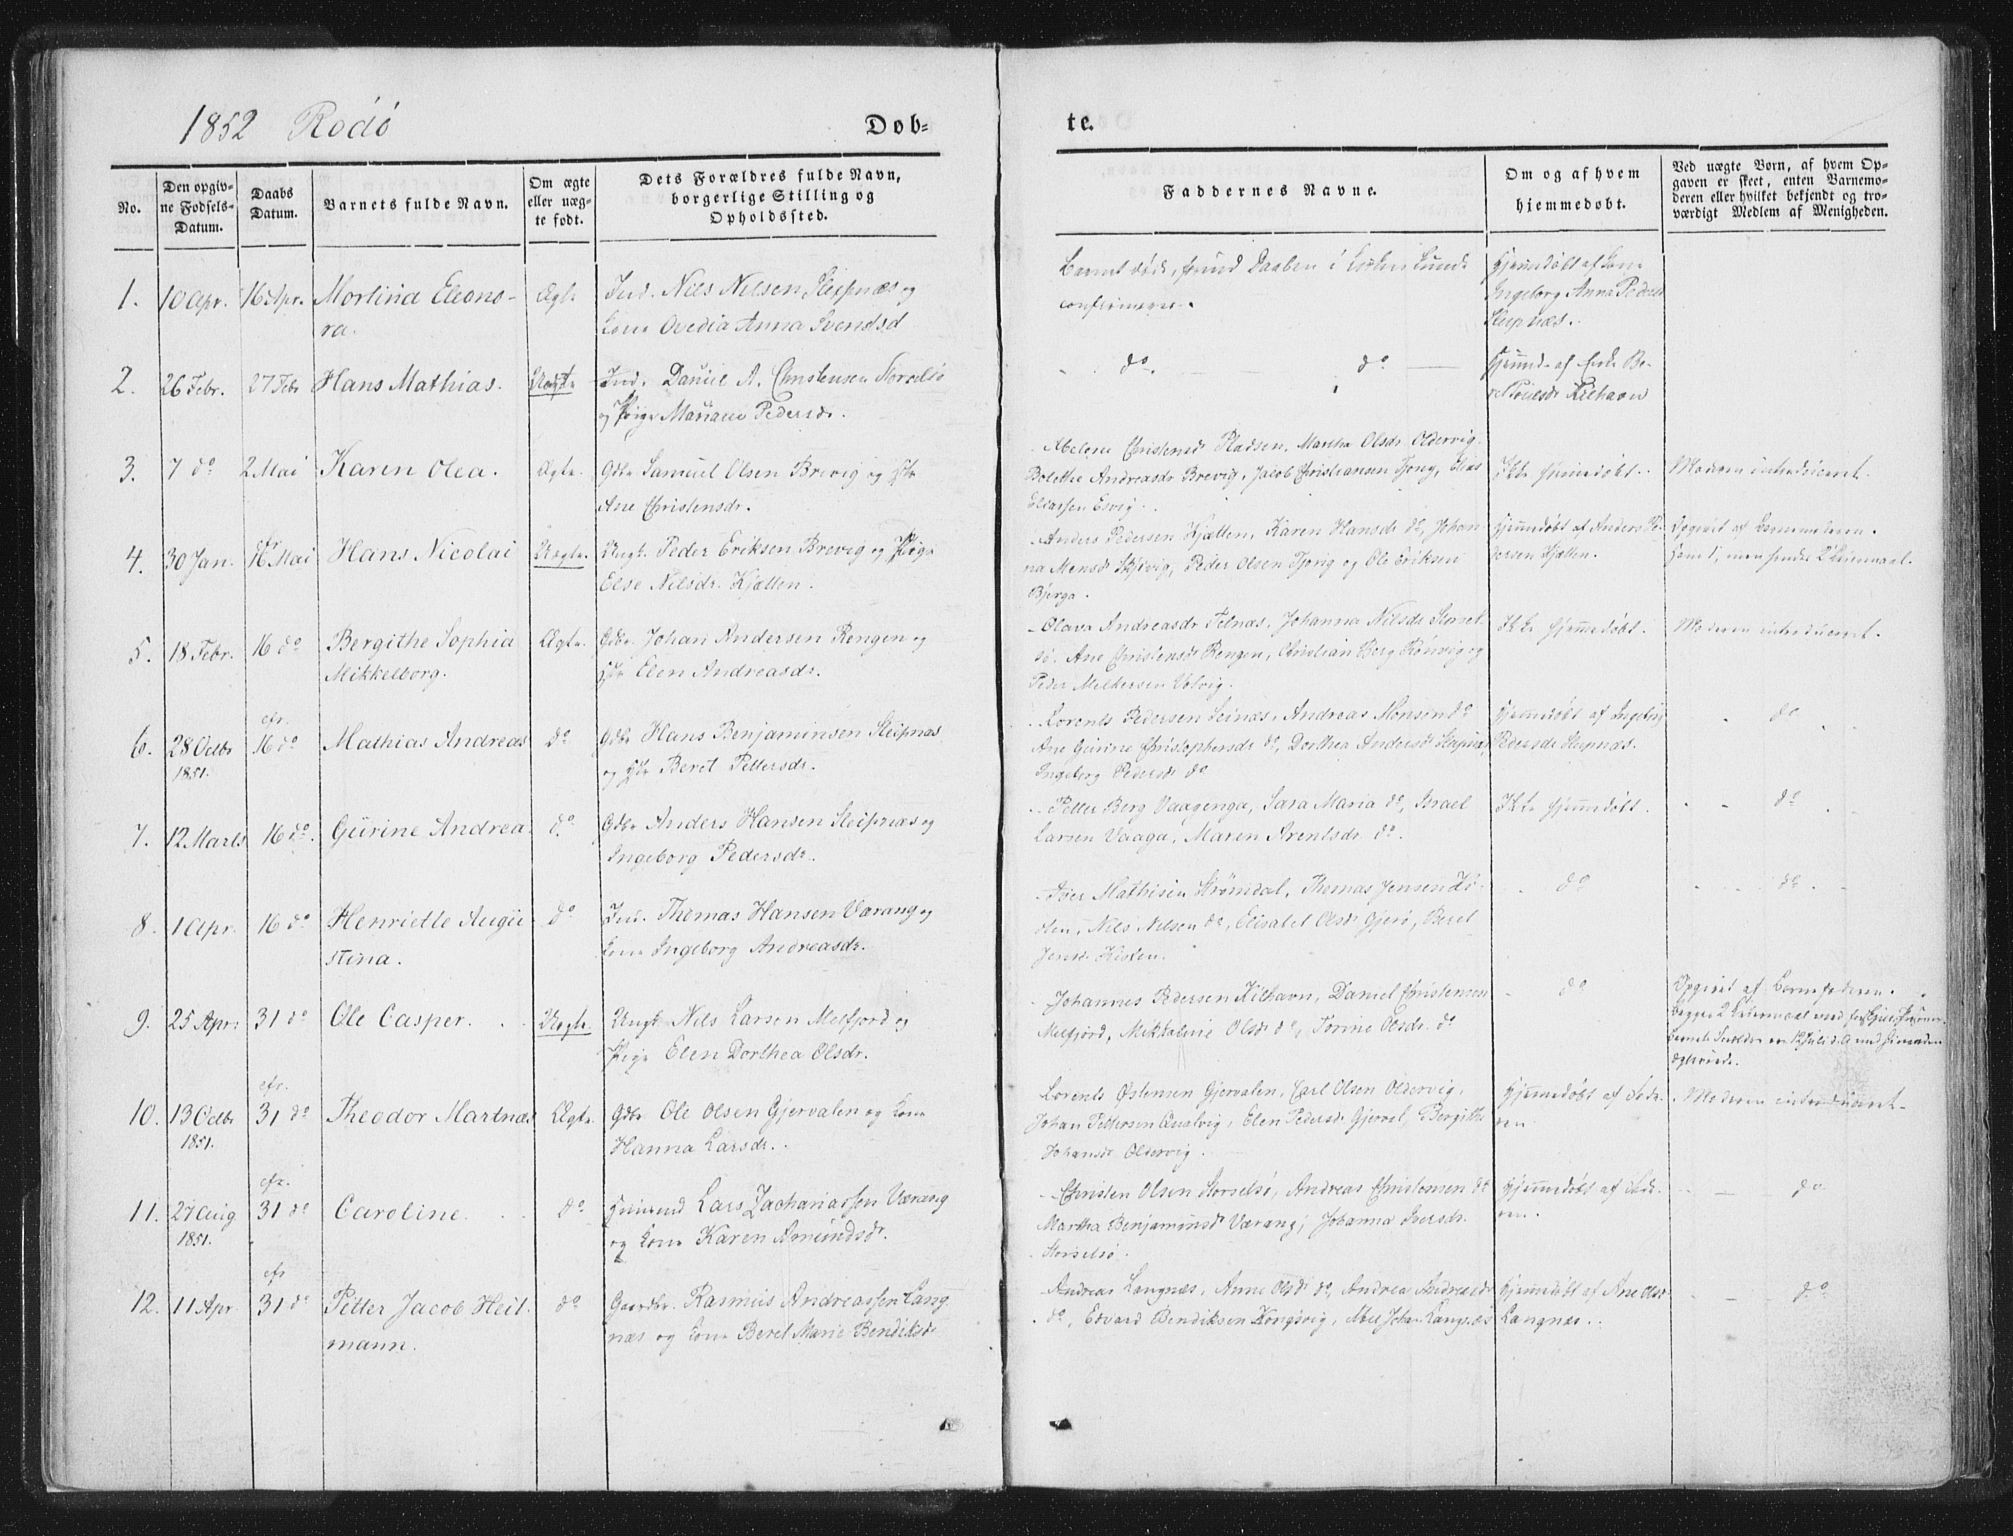 1852 Rødø
Døb-
te.
No.
Den opgiv-
ne Fødsels-
Datum.
Daabs
Datum.
Barnets fulde Navn.
Om ægte
eller uæg-
te født.
Dets Forældres fulde Navn,
borgerlige Stilling og
Opholdssted.
Faddernes Navne.
Om og af hvem
hjemmedøbt.
Ved uægte Børn, af hvem Op-
gaven er skeet, enten Barnemo-
deren eller hvilket bekjendt og tro-
værdigt Medlem af Menigheden.
1. 10 Apr. 16 Apr. Mortina Eleono-
ra.
Ægte
Ind. Nils Nilsen Sleipnæs og
Kone Ovedia Anna Svendsd
Barnet døde, førend Daaben i Kirken kunde
confirmeres.
Hjemmedøbt af
Ingeborg Anna Peders
Sleipnæs.
2. 26 Febr. 27 Febr Hans Mathias.
Uægte
Ind. Daniel A. Christensen Storselsø
og Pige Mariane Pedersdr.
do do
Hjemmd. af
Kilhavn
3. 7 do 2 Mai Karen Olea.
Ægte.
Gdbr Samuel Olsen Brevig og Hstr
Ane Christensdr.
Abelone Christensdr Pladsen, Martha Olsdr Oldervig
Bolethe Andreasdr Brevig, Jacob Christiansen Tjong, Elias
Eliassen Esvig.
Ikke hjemmedøbt.
Moderen introduceret.
4. 30 Jan. 16 Mai Hans Nicolai
Uægte.
Ungk. Peder Eriksen Brevig og Pige
Else Nilsdr. Kjætten.
Anders Pedersen Kjætten, Karen Hansdr do, Johan-
na Monsdr Skjevig, Peder Olsen Tjong og Ole Eriksen
Bjerga.
Hjemmedøbt af Anders Pe-
dersen Kjætten.
Opgivet af Barnemoderen.
hans 1, men hendes 2 Leiermaal.
5. 18 Febr. 16 do Bergithe Sophia
Mikkelborg.
Ægte.
Gdbr. Johan Andersen Rengen og
Hstr Elen Andreasdr.
Olava Andreasdr Telnæs, Johanna Nilsdr Storsel-
sø, Ane Christensdr Rengen, Christian Berg Rønvig og
Peder Melkersen Valvig.
Ikke hjemmedøbt.
Moderen introduceret.
6. 28 Octbr
1851.
cfr.
16 do
Mathias Andreas
do
Gdbr Hans Benjaminsen Sleipnæs
og Hstr Beret Pettersdr.
Lorents Pedersen Seinæs, Andreas Monsen do
Ane Gurine Christophersdr do, Dorthea Andersdr Sleipnæs,
Ingeborg Pedersdr do
Hjemmedøbt af Ingeborg
Pedersdr Sleipnæs.
do
7. 12 Marts 16 do. Gurine Andrea.
do
Gdbr Anders Hansen Sleipnæs og
Ingeborg Pedersdr.
Petter Berg Vaagenga, Sara Maria do, Israel
Larsen Vaaga, Maren Arentsdr do.
Ikke hjemmedøbt.
do
8. 1 Apr. 16 do Henriette Augu-
stina.
do
Ind. Thomas Hansen Værang og
Kone Ingeborg Andreasdr.
Iver Mathisen Strømdal, Thomas Jensen
Nils Nilsen do, Elisabet Olsdr Gjerø, Beret
Jensdr
do
do
9. 25 Apr. 31 do Ole Casper.
Uægte.
Ungk Nils Larsen Melfjord og
Pige Elen Dorthea Olsdr.
Johannes Pedersen Kilhavn, Daniel Christensen
Melfjord, Mikkeline Olsdr do, Torine Olsdr. do
do
Opgivet af Barnefaderen.
begges 2 Leiermaal med
10. 13 Octbr
1851.
cfr.
31 do
Theodor Martnæs
Ægte.
Gdbr Ole Olsen Gjervalen og Kone
Hanna Larsdr.
Lorents Østensen Gjervalen, Carl Olsen Oldervig,
Johan Pettersen Qualvig, Elen Pedersdr Gjerval, Bergithe
Johansdr Oldervig.
Hjemmedøbt af Fade-
ren
Moderen introduceret.
11. 27 Aug.
1851.
cfr.
31 do
Caroline.
do
Lars Zachariassen Værang
og Kone Karen Amundsdr.
Christen Olsen Storselsø, Andreas Christensen do
Martha Benjaminsdr Værang, Johanna Iversdr.
Storselsø.
Hjemmedøbt af Fade-
ren.
do
12. 11 Apr
cfr
31 do
Petter Jacob Heit-
mann.
do
Gaardbr. Rasmus Andreassen Lang-
næs og Kone Beret Marie Bendiksdr
Andreas Langnæs, Anne Olsdr do, Andrea Andreasdr
do, Edvard Bendiksen Kongsvig, Johan Langnæs
Hjemmedøbt af Ane Olsdr
Langnæs.
do